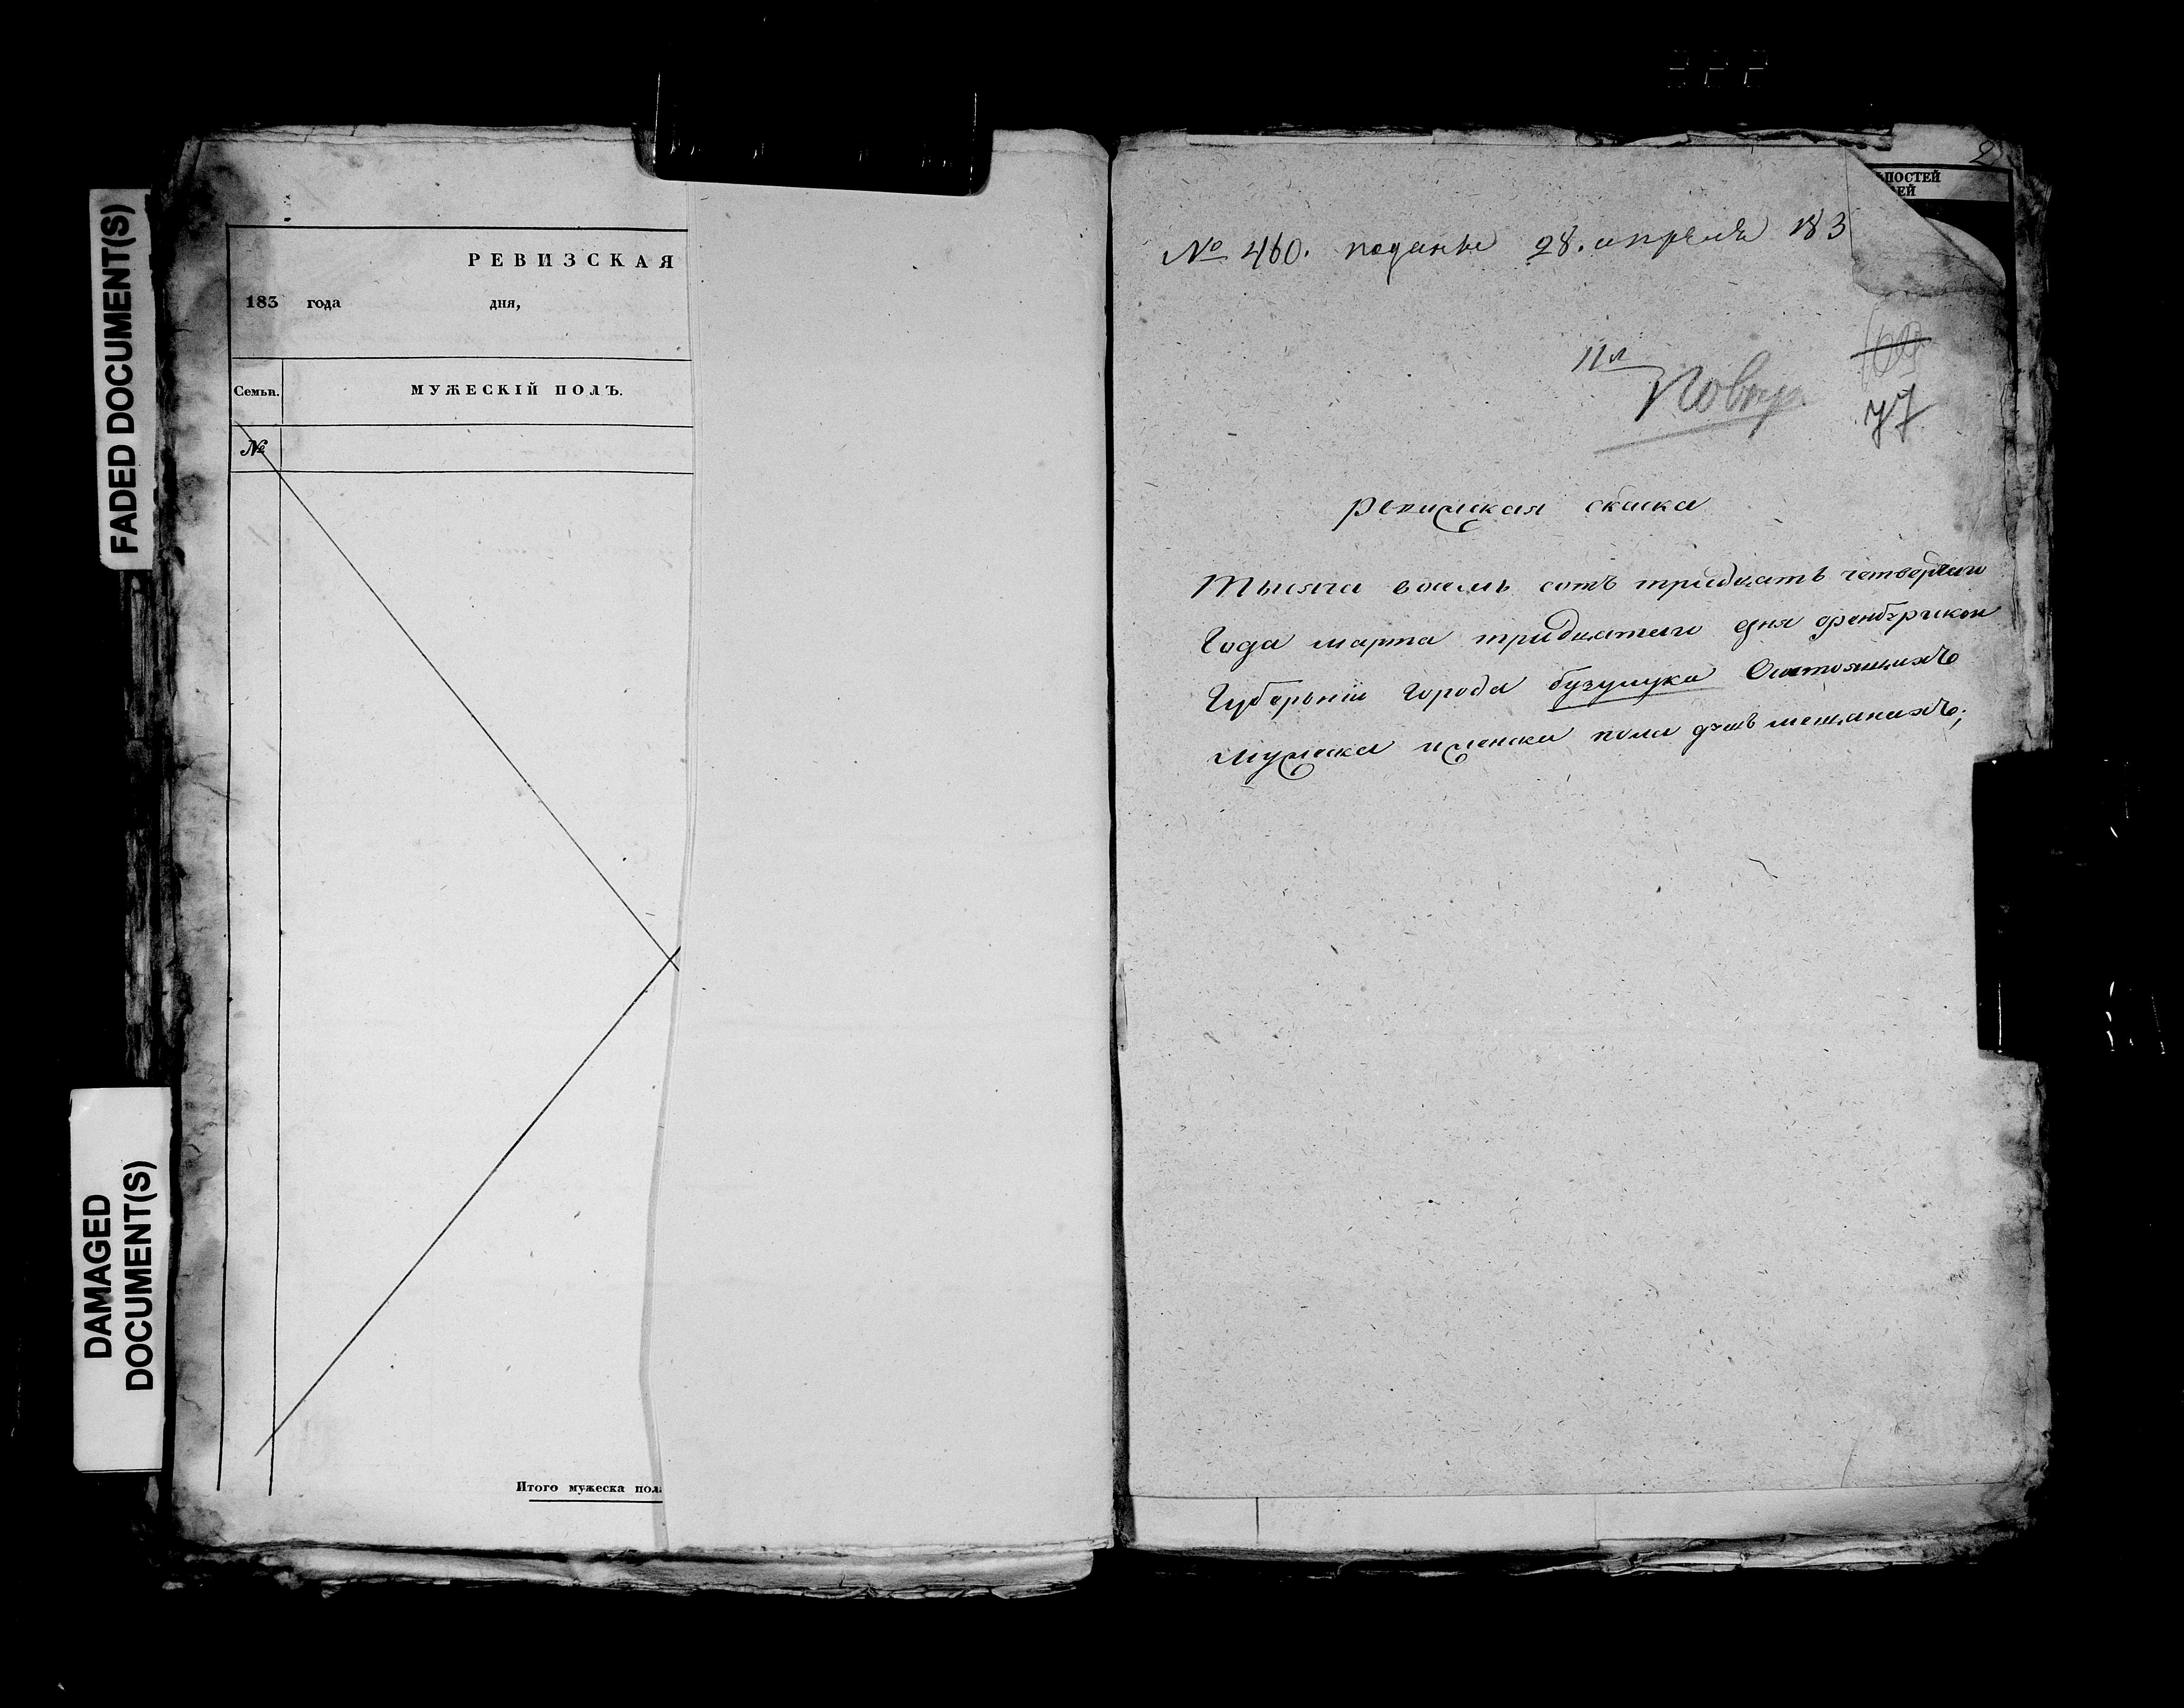 FADED DOCUMENT(S)
DAMAGED
DOCUMENT(S)
РЕВИЗСКАЯ
183 года дня,
Семьи. МУЖЕСКІЙ ПОЛЪ.
№
Итого мужеска пола
ЬПОСТЕЙ
ЕЙ
№ 460. поданы 28. апреля 183
11 л
Повтр.
77
Ревижская скаска
Тысяча восемь сотъ тридцать четвертаго
Года марта тридцатаго дня Оренбургской
Губерьніи города бузулука Состоящихъ
мужеска и женска пола душъ мещанахъ;